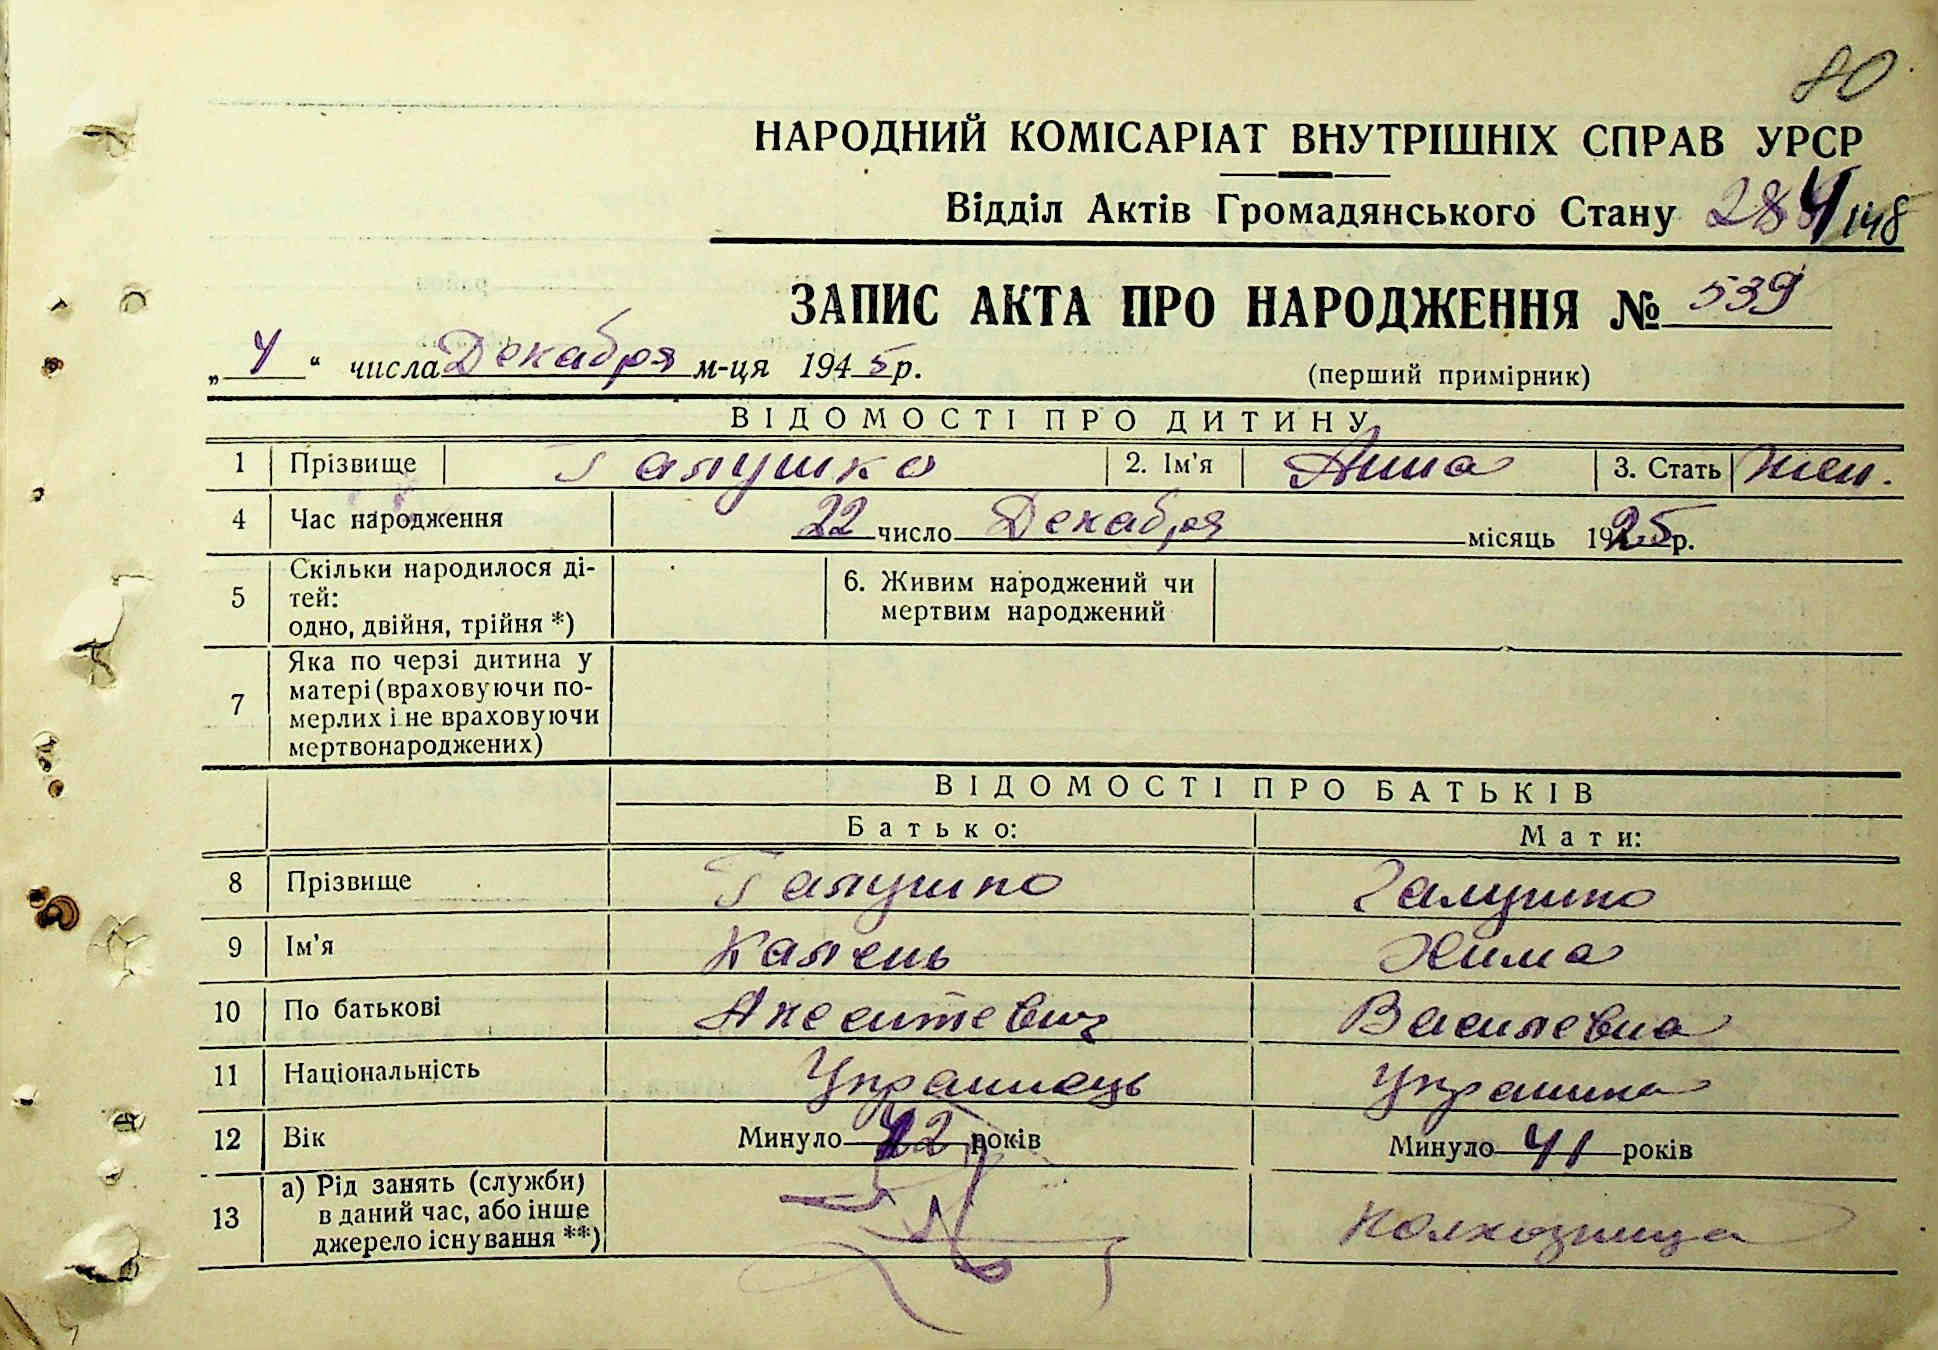 80
НАРОДНИЙ КОМІСАРІАТ ВНУТРІШНІХ СПРАВ УРСР
Відділ Актів Громадянського Стану
ЗАПИС АКТА ПРО НАРОДЖЕННЯ № 539
„ 4 “ числа Декабря м-ця 1945 р.
(перший примірник)
ВІДОМОСТІ ПРО ДИТИНУ
1 Прізвище Галушко 2. Ім'я Анна 3. Стать Жен.
4 Час народження 22 число Декабря місяць 1925 р.
5 Скільки народилося ді-
тей:
одно, двійня, трійня *)
6. Живим народжений чи
мертвим народжений
7 Яка по черзі дитина у
матері (враховуючи по-
мерлих і не враховуючи
мертвонароджених)
ВІДОМОСТІ ПРО БАТЬКІВ
Батько: Мати:
8 Прізвище Галушко Галушко
9 Ім'я Хима
10 По батькові Василевна
11 Національність Українець Украинка
12 Вік Минуло 42 років Минуло 41 років
13 а) Рід занять (служби)
в даний час, або інше
джерело існування **)
Колхозница